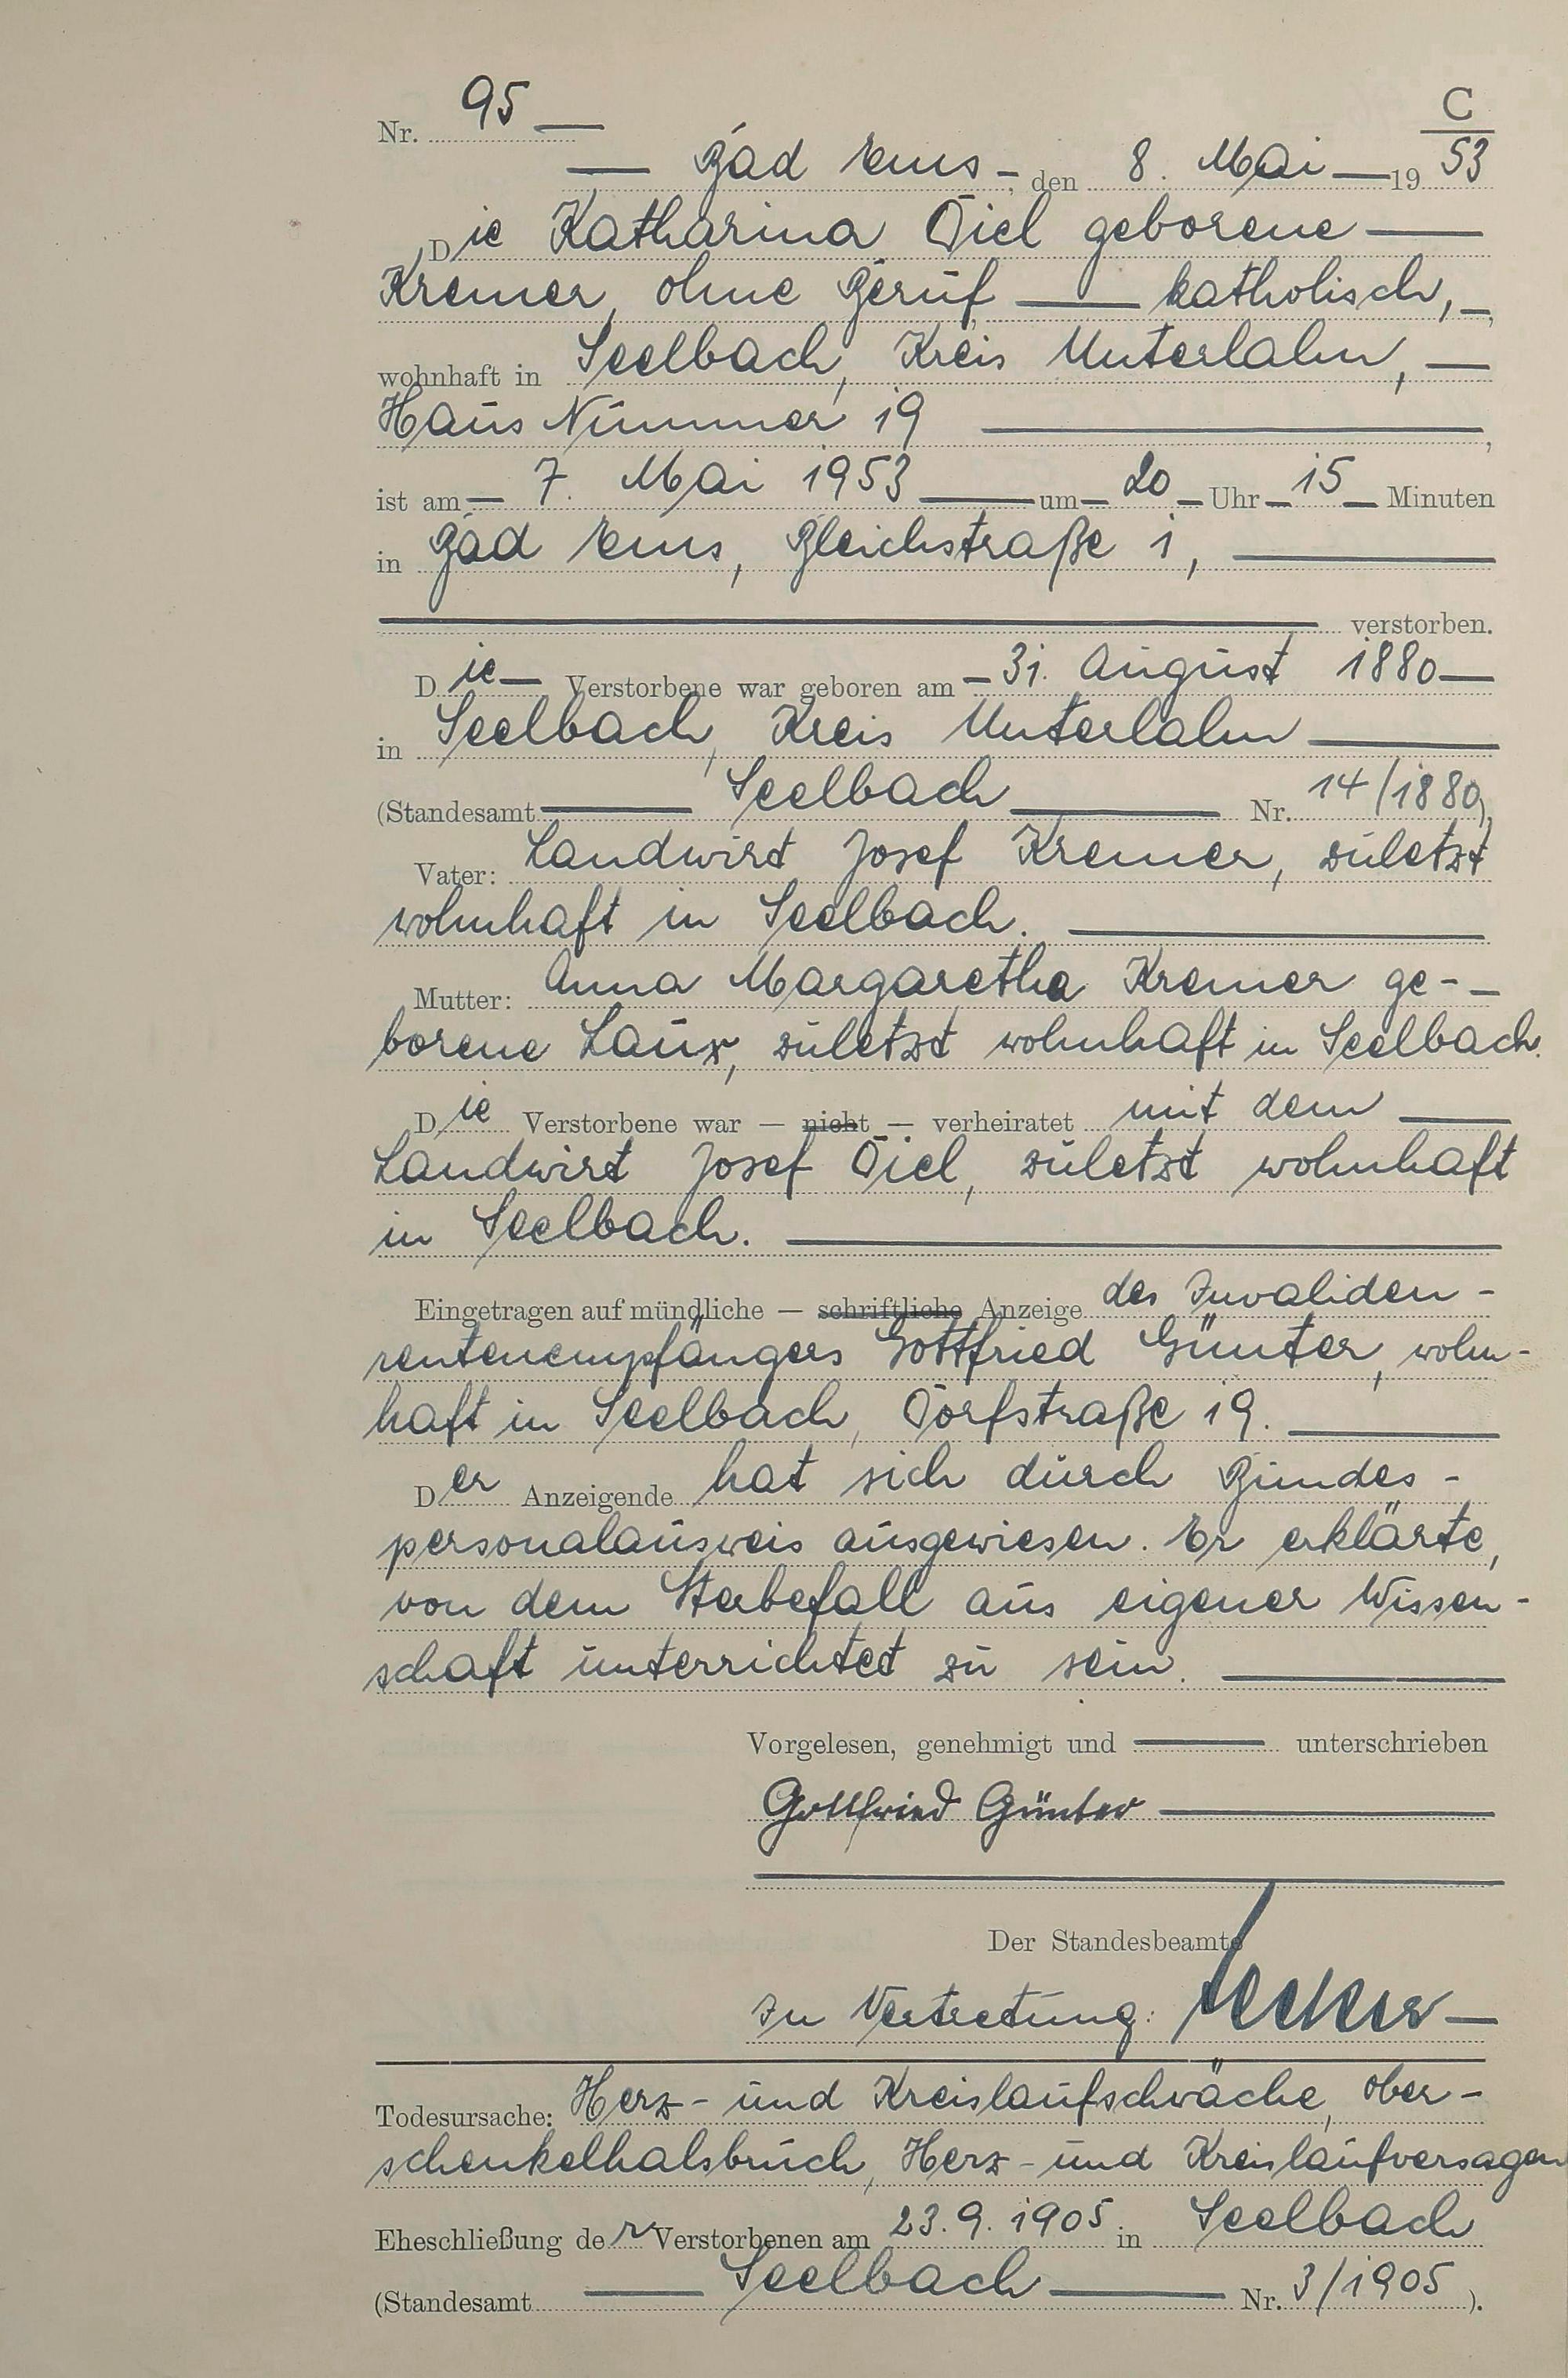 C
Nr. 95 —
— Bad Ems —, den 8. Mai — 19 53
Die Katharina Diel geborene —
Kremer, ohne Beruf — katholisch, —,
wohnhaft in Seelbach, Kreis Unterlahn, —
Haus Nummer 19 —,
ist am — 7. Mai 1953 — um — 20 — Uhr — 15 — Minuten
in Bad Ems, Bleichstraße 1, —
— verstorben.
Die — Verstorbene war geboren am — 31. August 1880 —
in Seelbach, Kreis Unterlahn —
(Standesamt — Seelbach — Nr. 14/1880),
Vater: Landwirt Josef Kremer, zuletzt
wohnhaft in Seelbach. —
Mutter: Anna Margaretha Kremer ge- —
borene Laux, zuletzt wohnhaft in Seelbach.
Die Verstorbene war — nicht — verheiratet mit dem —
Landwirt Josef Diel, zuletzt wohnhaft
in Seelbach. —
Eingetragen auf mündliche — schriftliche Anzeige des Invaliden-
rentenempfängers Gottfried Günter, wohn-
haft in Seelbach, Dorfstraße 19. —
Der Anzeigende hat sich durch Bundes-
personalausweis ausgewiesen. Er erklärte,
von dem Sterbefall aus eigener Wissen-
schaft unterrichtet zu sein. —
Vorgelesen, genehmigt und — unterschrieben
Gottfried Günter —
Der Standesbeamte
In Vertretung: —
Todesursache: Herz- und Kreislaufschwäche, Ober-
schenkelhalsbruch, Herz- und Kreislaufversagen
Eheschließung der Verstorbenen am 23.9.1905 in Seelbach
(Standesamt — Seelbach — Nr. 3/1905).